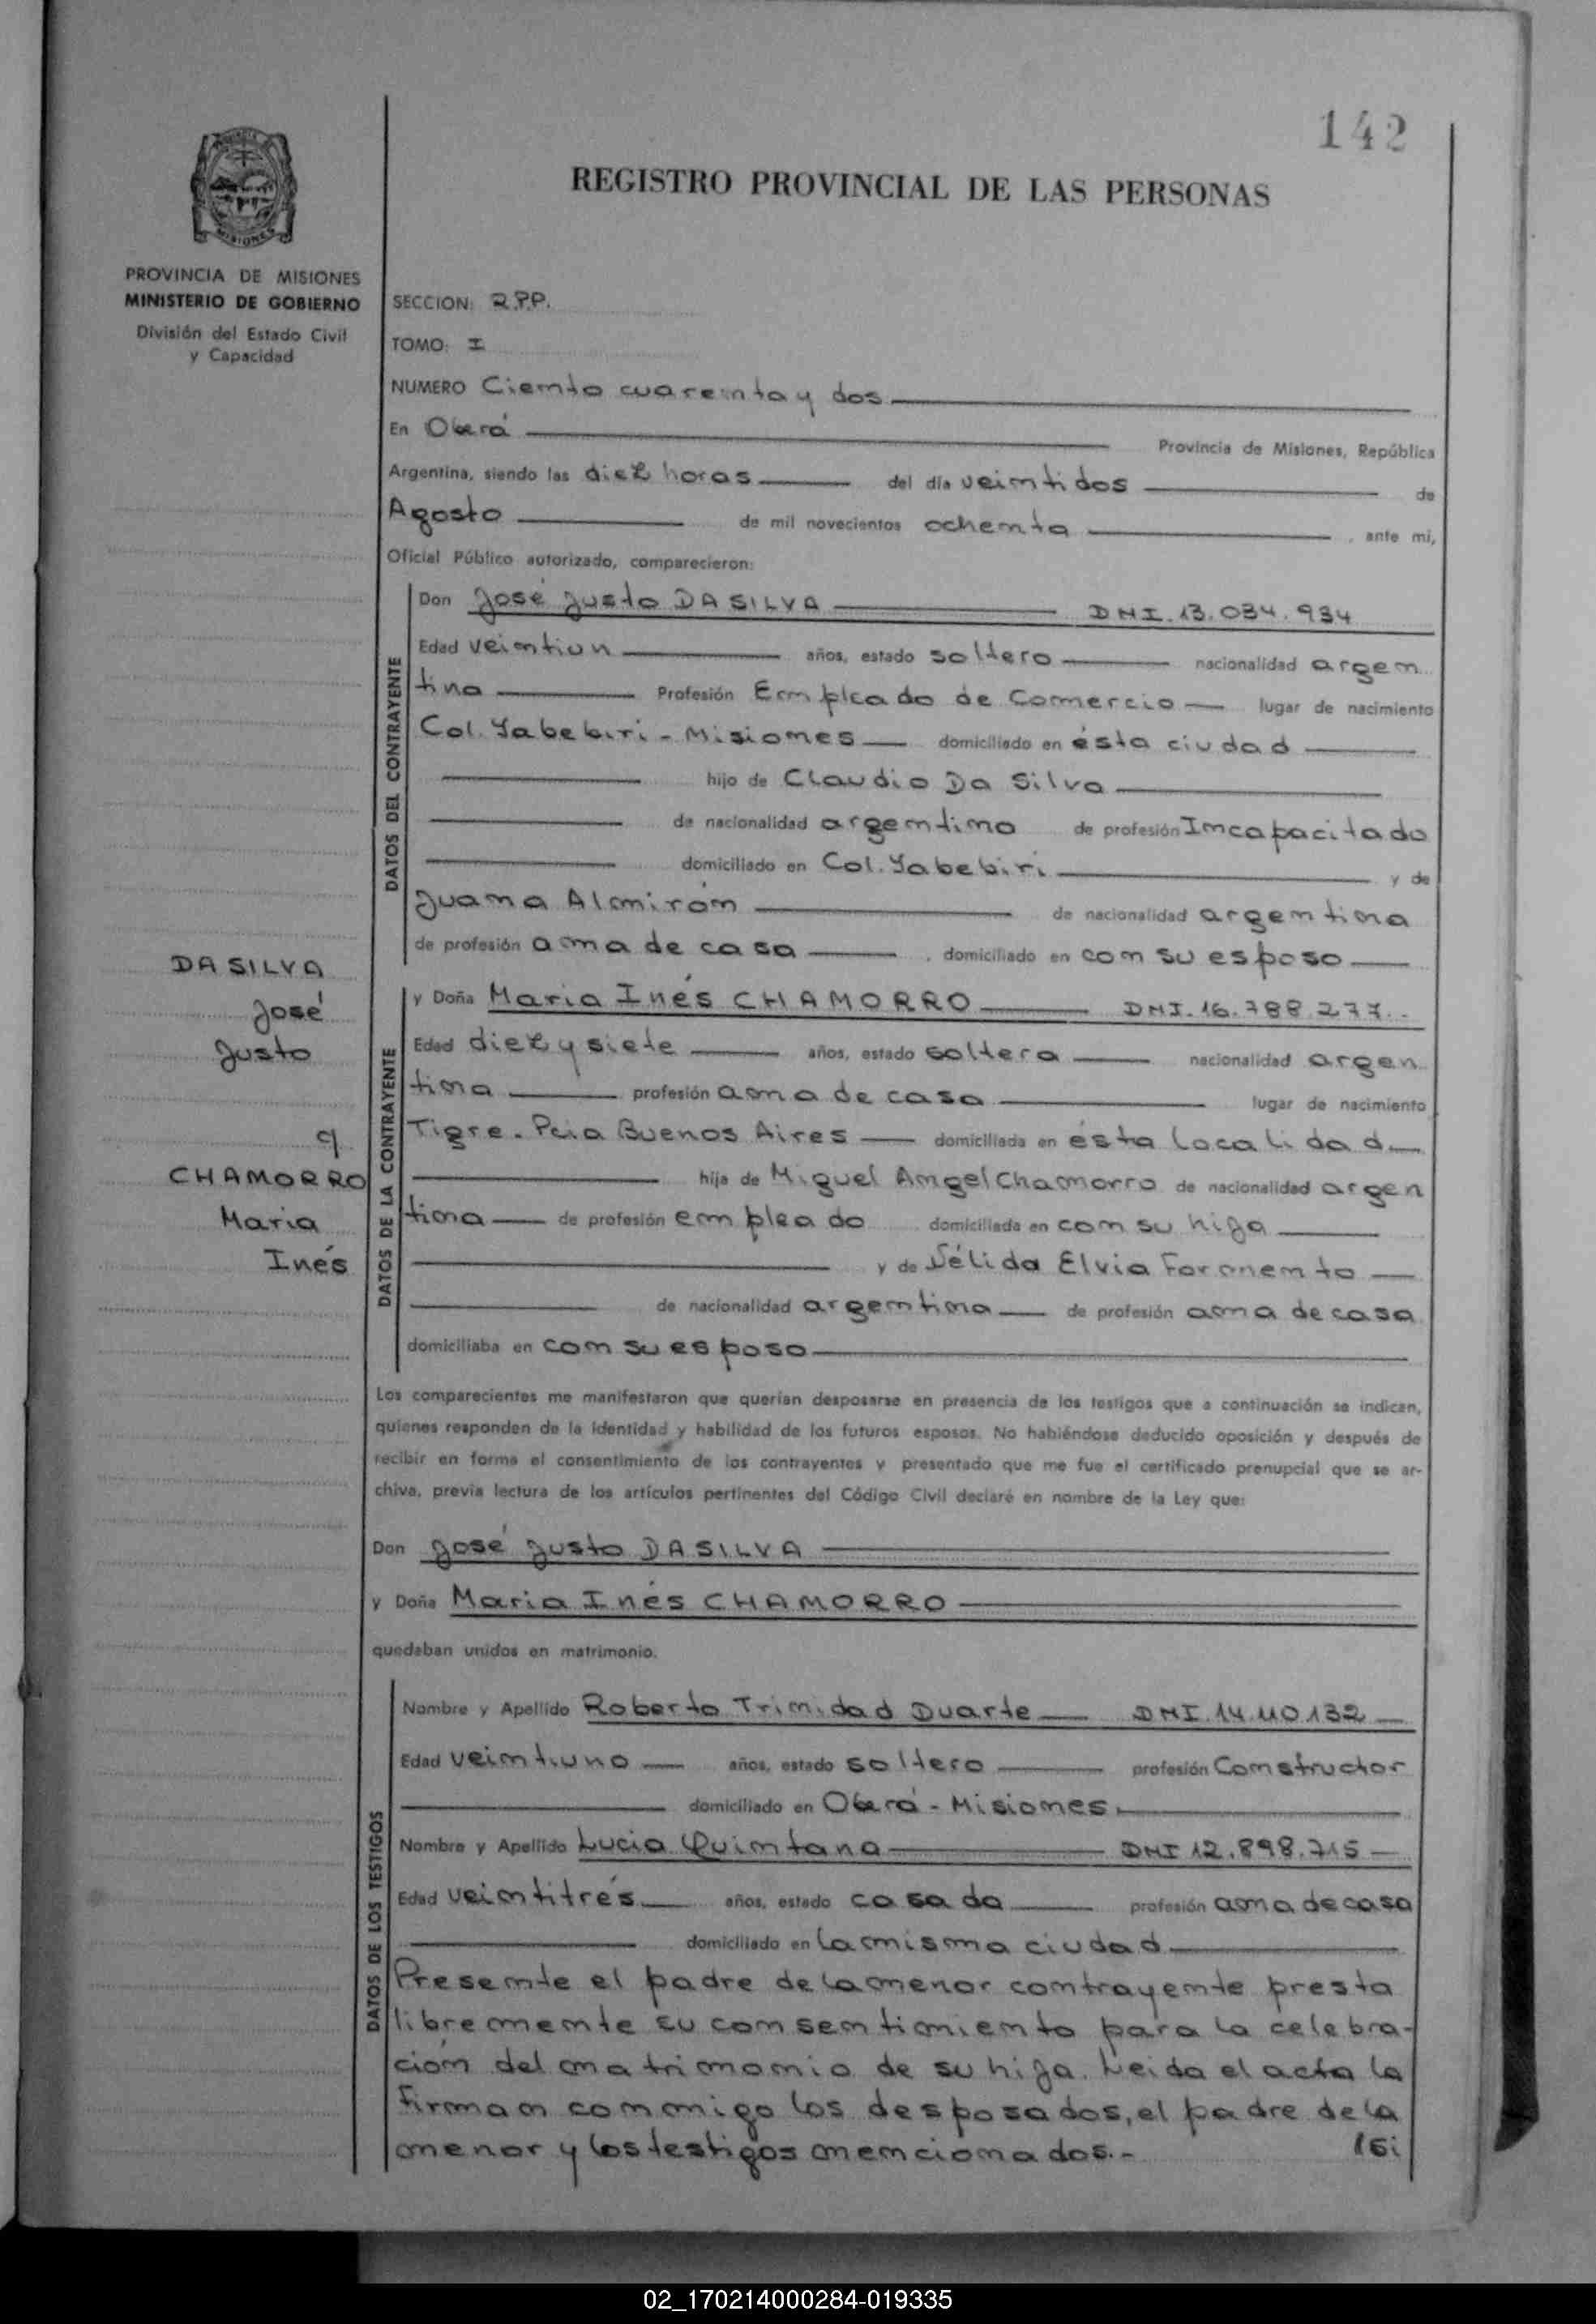 142
REGISTRO PROVINCIAL DE LAS PERSONAS
MISIONES
PROVINCIA DE MISIONES
MINISTERIO DE GOBIERNO
División del Estado Civil
y Capacidad
SECCION: R.P.P.
TOMO: I
NUMERO Ciento cuarenta y dos
En Oberá Provincia de Misiones, República
Argentina, siendo las diez horas del día veintidos de
Agosto de mil novecientos ochenta, ante mi,
Oficial Público autorizado, comparecieron:
DATOS DEL CONTRAYENTE
Don José Justo DA SILVA DNI. 13.034.934
Edad veintiun años, estado soltero nacionalidad argen
tina Profesión Empleado de Comercio lugar de nacimiento
Col. Yabebiri - Misiones domiciliado en ésta ciudad
hijo de Claudio Da Silva
de nacionalidad argentino de profesión Incapacitado
domiciliado en Col. Yabebiri y de
Juana Almirón de nacionalidad argentina
de profesión ama de casa, domiciliado en con su esposo
DA SILVA
José
Justo
c/
CHAMORRO
Maria
Inés
DATOS DE LA CONTRAYENTE
y Doña Maria Inés CHAMORRO DNI. 16.788.277.-
Edad diez y siete años, estado soltera nacionalidad argen
tina profesión ama de casa lugar de nacimiento
Tigre. Pcia Buenos Aires domiciliada en ésta localidad
hija de Miguel Angel Chamorro de nacionalidad argen
tina de profesión empleado domiciliada en con su hija
y de Nélida Elvia
de nacionalidad argentina de profesión ama de casa
domiciliaba en con su esposo
Los comparecientes me manifestaron que querían desposarse en presencia de los testigos que a continuación se indican,
quienes responden de la identidad y habilidad de los futuros esposos. No habiéndose deducido oposición y después de
recibir en forma el consentimiento de los contrayentes y presentado que me fue el certificado prenupcial que se ar-
chiva, previa lectura de los artículos pertinentes del Código Civil declaré en nombre de la Ley que:
Don José Justo DA SILVA
y Doña Maria Inés CHAMORRO
quedaban unidos en matrimonio.
DATOS DE LOS TESTIGOS
Nombre y Apellido Roberto Trinidad Duarte DNI. 14.110.132
Edad veintiuno años, estado soltero profesión Constructor
domiciliado en Oberá - Misiones.
Nombre y Apellido Lucia Quintana DNI 12.898.715
Edad veintitrés años, estado casada profesión ama de casa
domiciliado en la misma ciudad
Presente el padre de la menor contrayente presta
libremente su consentimiento para la celebra-
ción del matrimonio de su hija. Leida el acta la
firman conmigo los desposados, el padre de la
menor y los testigos mencionados.-
02_170214000284-019335